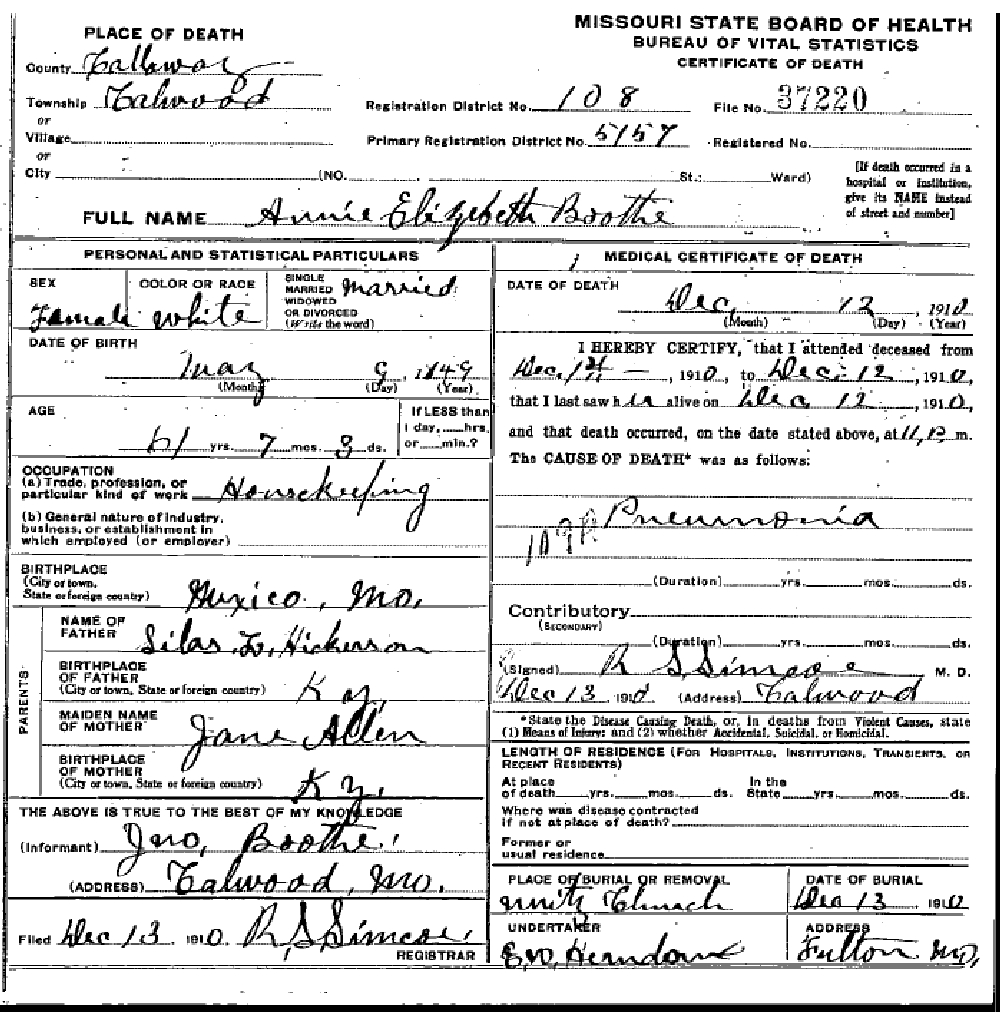 MISSOURI STATE BOARD OF HEALTH
BUREAU OF VITAL STATISTICS
CERTIFICATE OF DEATH
PLACE OF DEATH
County Callaway
Township Calwood
or
Village
or
City (NO. St.; Ward)
Registration District No. 108 File No. 37220
Primary Registration District No. 5157 Registered No.
[If death occurred in a
hospital or institution,
give its NAME instead
of street and number]
FULL NAME Annie Elizebeth Boothe
PERSONAL AND STATISTICAL PARTICULARS
SEX
Female
COLOR OR RACE
white
SINGLE
MARRIED
WIDOWED
OR DIVORCED
(Write the word)
Married
DATE OF BIRTH
May 9, 1849
(Month) (Day) (Year)
AGE
61 yrs. 7 mos. 3 ds.
If LESS than
1 day, hrs.
or min.?
OCCUPATION
(a) Trade, profession, or
particular kind of work Housekeeping
(b) General nature of industry,
business, or establishment in
which employed (or employer)
BIRTHPLACE
(City or town,
State or foreign country) Mexico, Mo.
PARENTS
NAME OF
FATHER Silas Hickerson
BIRTHPLACE
OF FATHER
(City or town, State or foreign country) Ky.
MAIDEN NAME
OF MOTHER Jane Allen
BIRTHPLACE
OF MOTHER
(City or town, State or foreign country) Ky.
THE ABOVE IS TRUE TO THE BEST OF MY KNOWLEDGE
(Informant) Jno. Boothe
(ADDRESS) Calwood, Mo.
Filed Dec 13 1910 R S Simcoe
REGISTRAR
MEDICAL CERTIFICATE OF DEATH
DATE OF DEATH
Dec 12, 1910
(Month) (Day) (Year)
I HEREBY CERTIFY, that I attended deceased from
Dec. 1st, 1910, to Dec. 12, 1910,
that I last saw her alive on Dec 12, 1910,
and that death occurred, on the date stated above, at 11, P. m.
The CAUSE OF DEATH* was as follows:
Pneumonia
(Duration) yrs. mos. ds.
Contributory
(SECONDARY)
(Duration) yrs. mos. ds.
(Signed) R S Simcoe M. D.
Dec 13 1910 (Address) Calwood
*State the Disease Causing Death, or, in deaths from Violent Causes, state
(1) Means of Injury; and (2) whether Accidental, Suicidal, or Homicidal.
LENGTH OF RESIDENCE (FOR HOSPITALS, INSTITUTIONS, TRANSIENTS, OR
RECENT RESIDENTS)
At place
of death yrs. mos. ds.
In the
State yrs. mos. ds.
Where was disease contracted
if not at place of death?
Former or
usual residence
PLACE OF BURIAL OR REMOVAL
Church
DATE OF BURIAL
Dec 13 1910
UNDERTAKER
Herndon
ADDRESS
Fulton Mo.